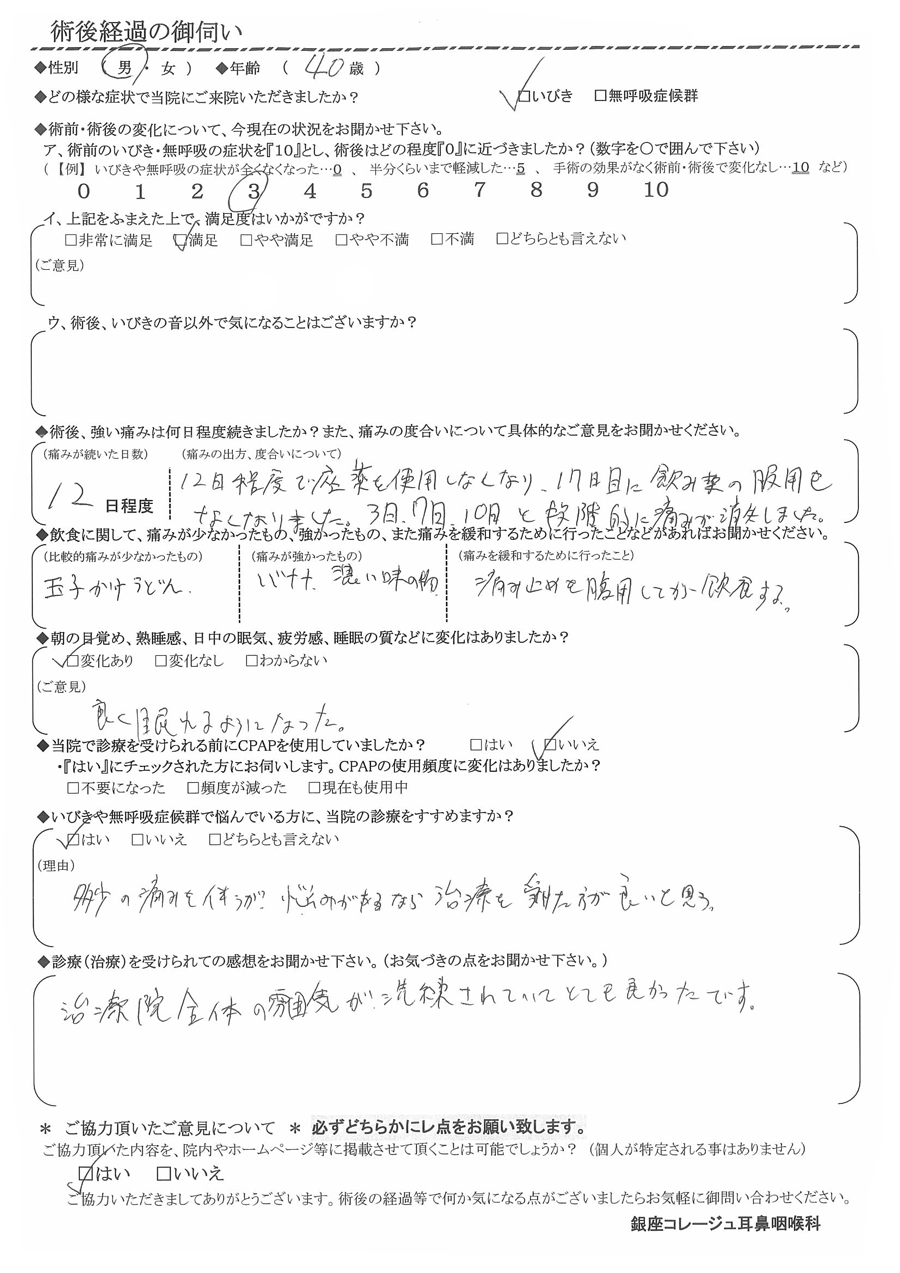 術後経過の御伺い
◆性別 （ 男 ・ 女 ） ◆年齢 （ 40 歳 ）
◆どの様な症状で当院にご来院いただきましたか？ ☑いびき □無呼吸症候群
◆術前・術後の変化について、今現在の状況をお聞かせ下さい。
ア、術前のいびき・無呼吸の症状を『10』とし、術後はどの程度『0』に近づきましたか？（数字を○で囲んで下さい）
（ 【例】 いびきや無呼吸の症状が全くなくなった…0 、 半分くらいまで軽減した…5 、 手術の効果がなく術前・術後で変化なし…10 など）
0 1 2 3 4 5 6 7 8 9 10
イ、上記をふまえた上で、満足度はいかがですか？
□非常に満足 ☑満足 □やや満足 □やや不満 □不満 □どちらとも言えない
（ご意見）
ウ、術後、いびきの音以外で気になることはございますか？
◆術後、強い痛みは何日程度続きましたか？また、痛みの度合いについて具体的なご意見をお聞かせください。
（痛みが続いた日数） （痛みの出方、度合いについて）
12 日程度 12日程度で座薬を使用しなくなり、17日目に飲み薬の服用も
なくなりました。3日、7日、10日と段階的に痛みが消失しました。
◆飲食に関して、痛みが少なかったもの、強かったもの、また痛みを緩和するために行ったことなどがあればお聞かせください。
（比較的痛みが少なかったもの） （痛みが強かったもの） （痛みを緩和するために行ったこと）
玉子かけうどん. バナナ、濃い味の物 痛み止めを服用してから飲食する。
◆朝の目覚め、熟睡感、日中の眠気、疲労感、睡眠の質などに変化はありましたか？
☑変化あり □変化なし □わからない
（ご意見）
良く眠れるようになった。
◆当院で診療を受けられる前にCPAPを使用していましたか？ □はい ☑いいえ
・『はい』にチェックされた方にお伺いします。CPAPの使用頻度に変化はありましたか？
□不要になった □頻度が減った □現在も使用中
◆いびきや無呼吸症候群で悩んでいる方に、当院の診療をすすめますか？
☑はい □いいえ □どちらとも言えない
（理由）
多少の痛みを伴うが、悩みがあるなら治療を受けた方が良いと思う。
◆診療（治療）を受けられての感想をお聞かせ下さい。（お気づきの点をお聞かせ下さい。）
治療院全体の雰囲気が洗練されていてとても良かったです。
＊ ご協力頂いたご意見について ＊ 必ずどちらかにレ点をお願い致します。
ご協力頂いた内容を、院内やホームページ等に掲載させて頂くことは可能でしょうか？ （個人が特定される事はありません）
☑はい □いいえ
ご協力いただきましてありがとうございます。術後の経過等で何か気になる点がございましたらお気軽に御問い合わせください。
銀座コレージュ耳鼻咽喉科